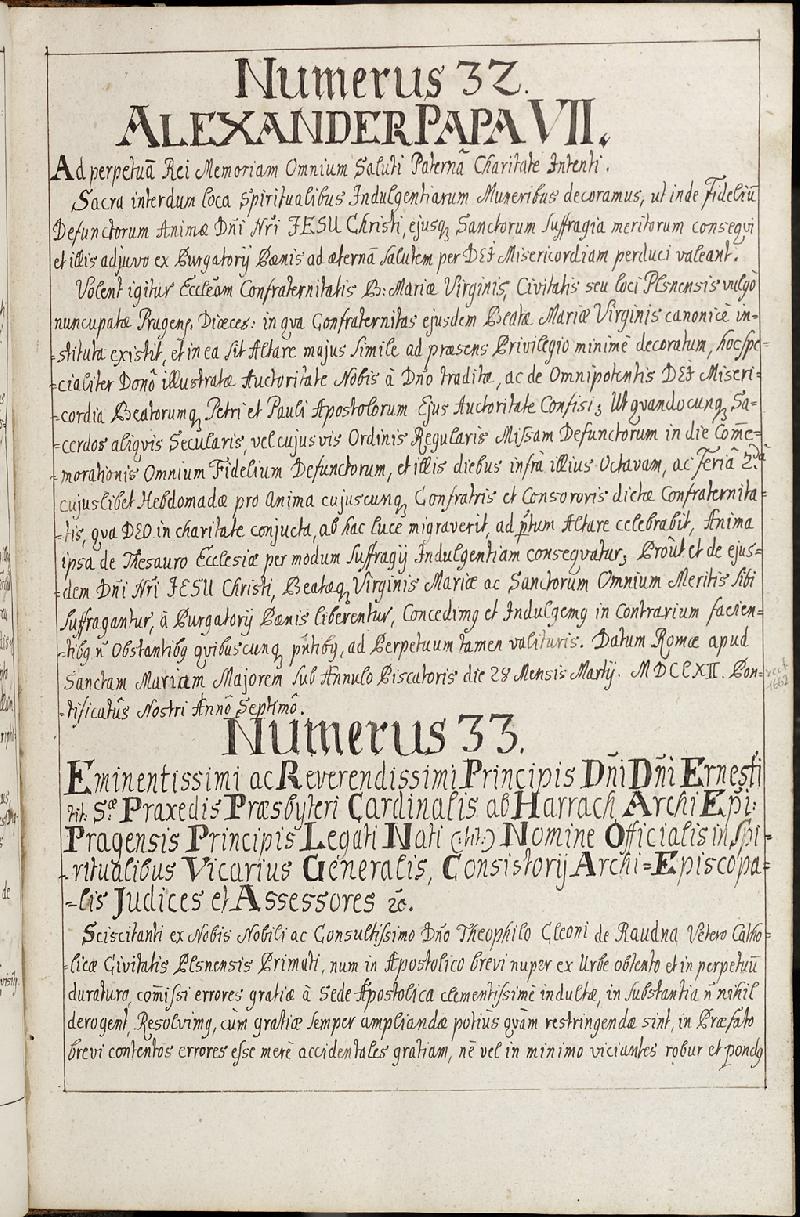 Numerus 32.
ALEXANDER PAPA VII.
Ad perpetuã Rei Memoriam Omnium Saluti Paternã Charitate Intenti.
Sacra interdum loca Spiritualibus Indulgentiarum Muneribus decoramus, ut inde Fideliũ
Defunctorum Animæ Dñi Nr̃i JESU Christi, ejusq; Sanctorum Suffragia meritorum consequi
et illis adjuvo ex Purgatorij Pœnis ad æternã salutem per DEI Misericordiam perduci valeant.
Volent igitur Eccleãm Confraternitatis B: Mariæ Virginis, Civitatis seu loci Plsnensis vulgò
nuncupatæ Pragenȩ Diœces: in qva Confraternitas ejusdem Beatæ Mariæ Virginis canonicè in=
=stituta existit, et in ea sit Altare majus simile ad præsens Privilegio minimè decoratum, hoc spe=
=cialiter Donõ illustratæ Auctoritate Nobis à Dño tradita, ac de Omnipotentis DEI Miseri=
=cordia Beatorumq; Petri et Pauli Apostolorum Ejus Auctoritate Confisi; Ut qvandocunq; Sa=
=cerdos aliqvis Secularis, vel cujusvis Ordinis Regularis Missam Defunctorum in die Com̃e=
=morationis Omnium Fidelium Defunctorum, et illis diebus infrà illius Octavam, ac Feriâ 2dâ
cujuslibet Hebdomadæ pro Anima cujuscunq; Confratris et Consororis dictæ Confraternita=
=tis, qva DEO in charitate conjucta, ab hac luce migraverit, ad p̃tum Altare celebrabit, Anima
ipsa de Thesauro Ecclesiæ per modum Suffragij Indulgentiam conseqvatur; Prout et de ejus=
=dem Dñi Nr̃i JESU Christi, Beataq; Virginis Mariæ ac Sanctorum Omnium Meritis sibi
Suffragantur, à Purgatorij Pœnis liberentur, Concedimq et Indulgemq in contrarium facien=
=tibq ñ Obstantibq qvibuscunq; p̃ntibq, ad Perpetuum tamen valituris. Datum Romæ apud
Sanctam Mariam Majorem Sub Annulo Piscatoris die 28 Mensis Martij. MDCCXII. Pon=
=tificatûs Nostri Annõ Septimõ.
Numerus 33.
Eminentissimi ac Reverendissimi Principis Dñi Dñi Ernesti
tit. Sæ Praxedis Præsbyteri Cardinalis ab Harrach Archi Epi:
Pragensis Principis Legati Nati (:tit:) Nomine Officialis in Spi=
=ritualibus Vicarius Generalis, Consistorij Archi=Episcopa=
=lis Judices et Assessores &c.
Sciscitanti ex Nobis Nobili ac Consultissimo Dño Theophilo Cleoni de Raudna Vetero Catho=
=licæ Civitatis Plsnensis Primati, num in Apostolico brevi nuper ex Urbe obtento et in perpetuũ
duraturo, com̃issi errores gratiæ à Sede Apostolica clementissimè indultæ, in substantia ñ nihil
derogent, Resolvimq, cùm gratiæ semper ampliandæ potiùs qvàm restringendæ sint, in Præfato
brevi contentos errores esse merè accidentales gratiam, nè vel in minimo viciantes robur et pondq